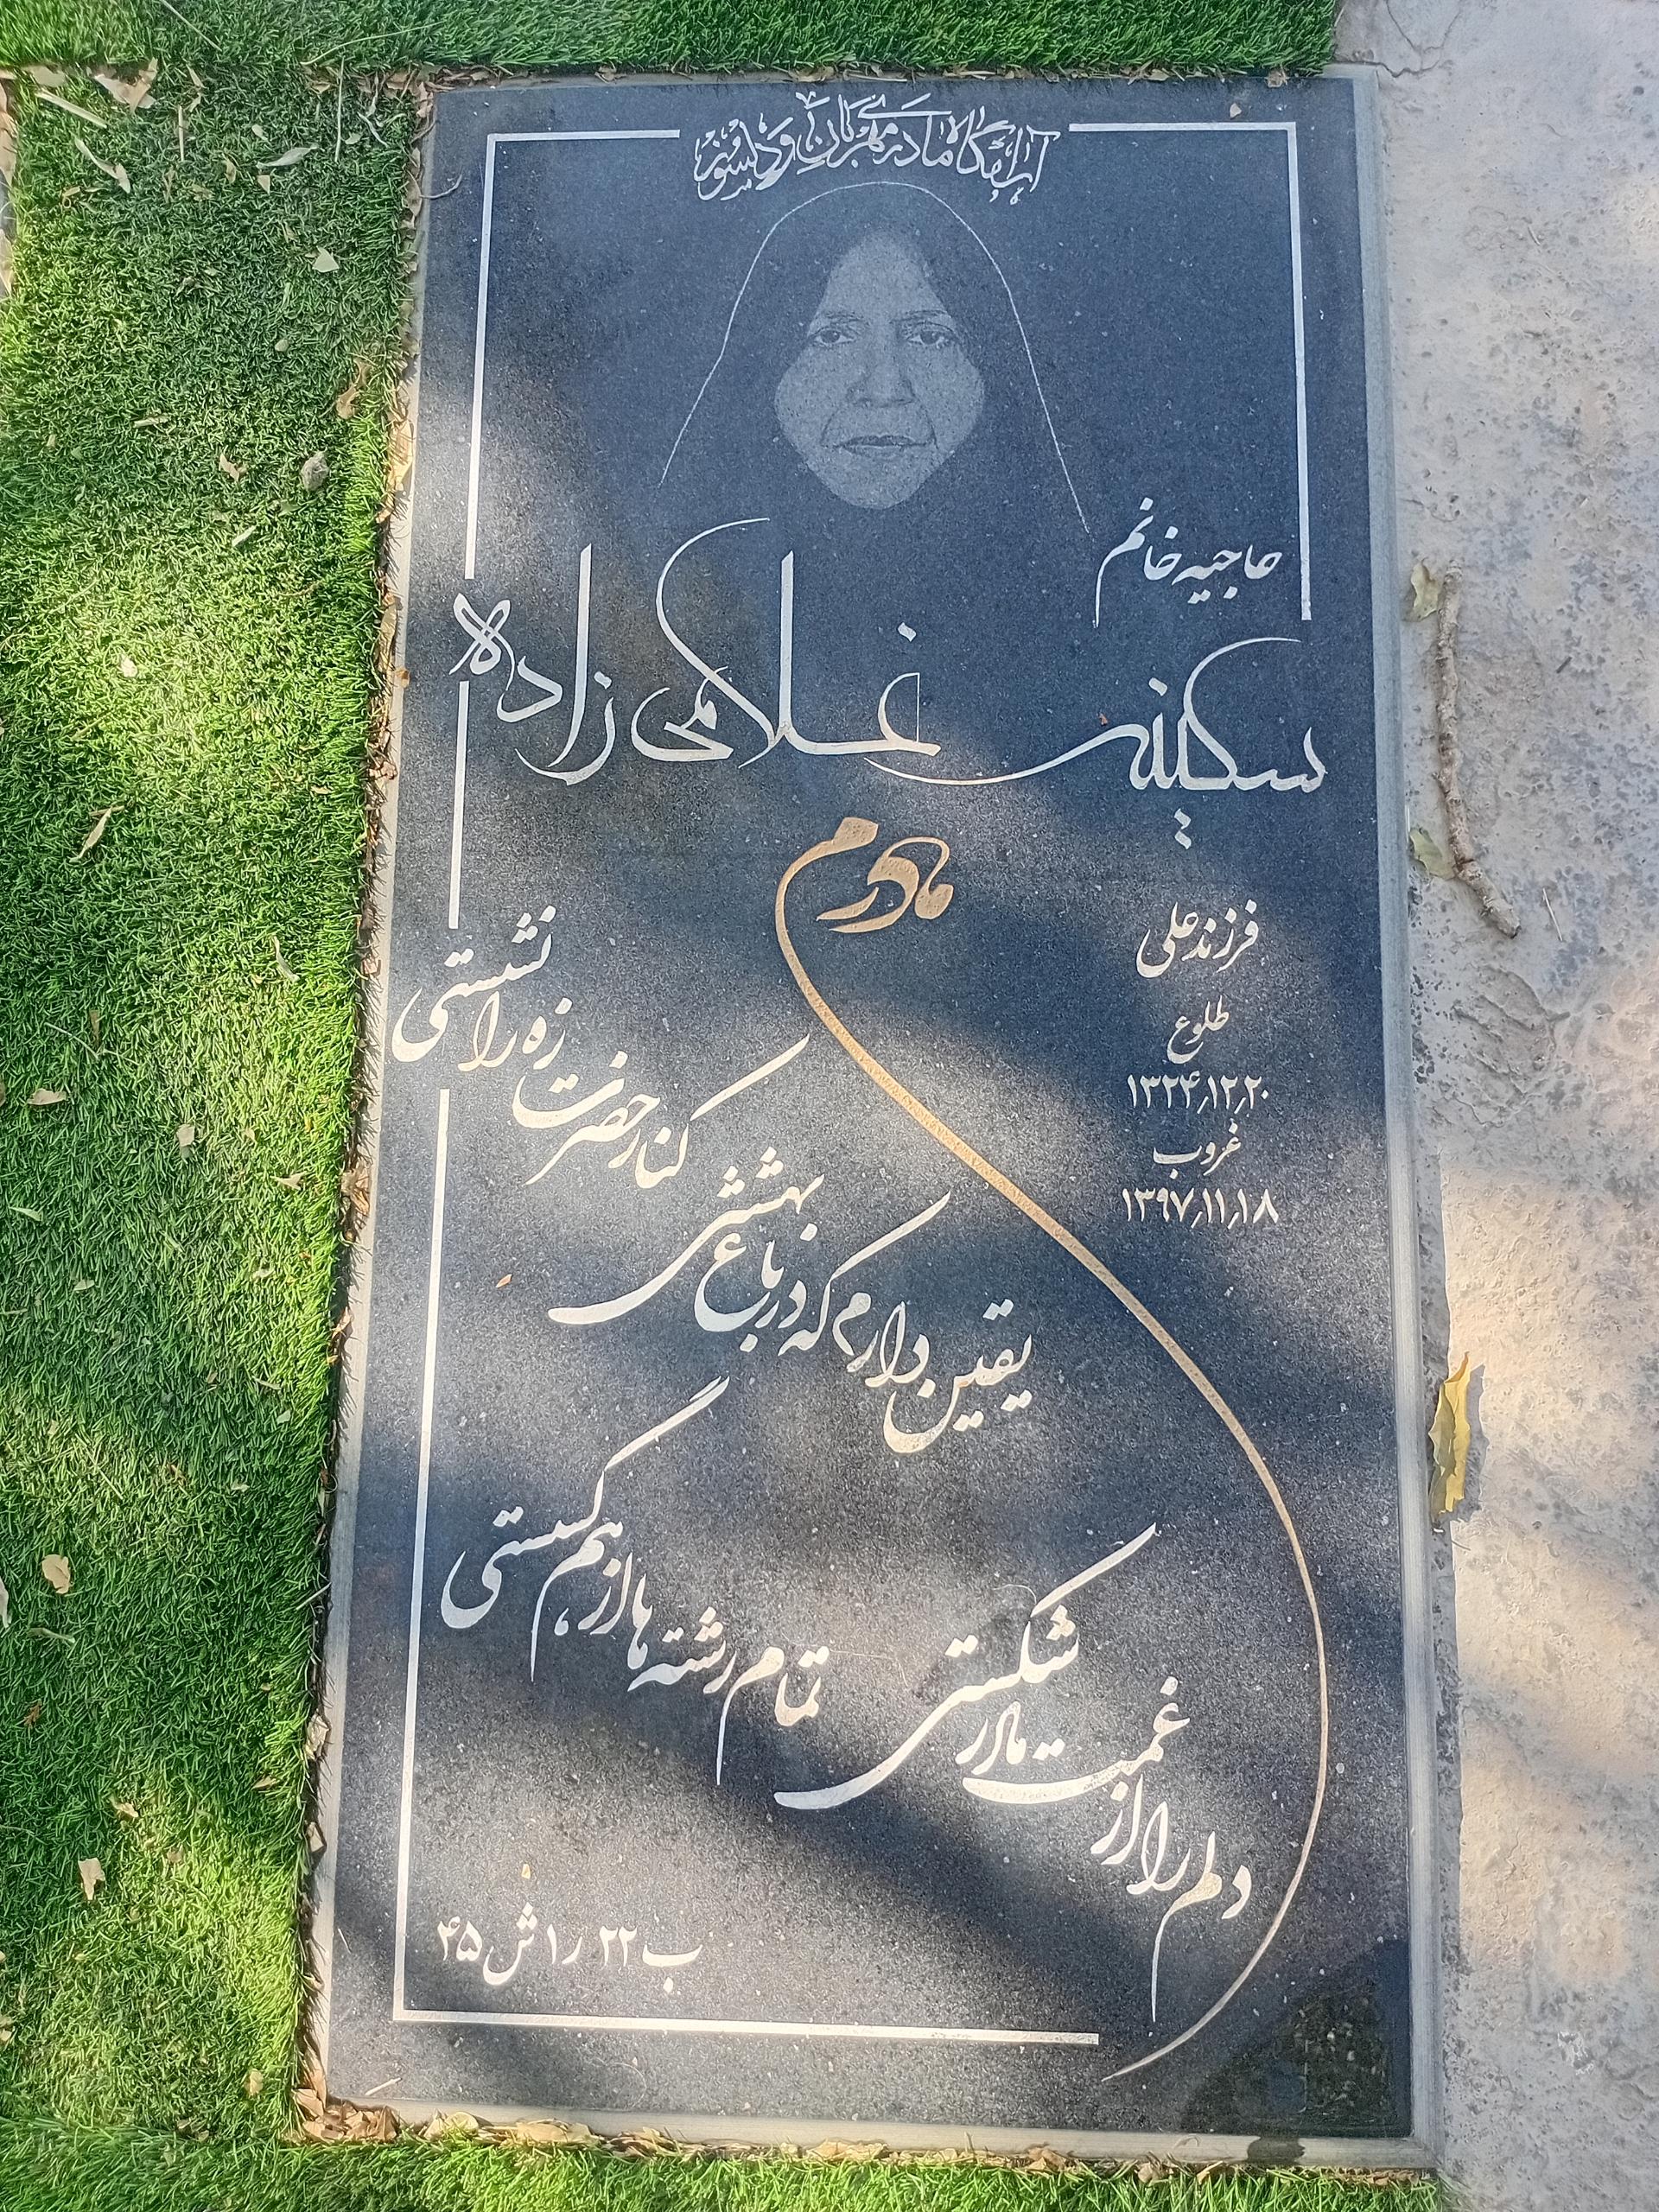 آرامگاه مادری مهربان و دلسوز
حاجیه خانم
سکینه غلامی زاده
فرزند علی
طلوع
۱۳۲۴٫۱۲٫۲۰
غروب
۱۳۹۷٫۱۱٫۱۸
مادرم
دلم را از غمت مادر شکستی
تمام رشته ها از هم گسستی
یقین دارم که در باغ بهشتی
کنار حضرت زهرا نشستی
ب ۲۲ ر ۱ ش ۴۵